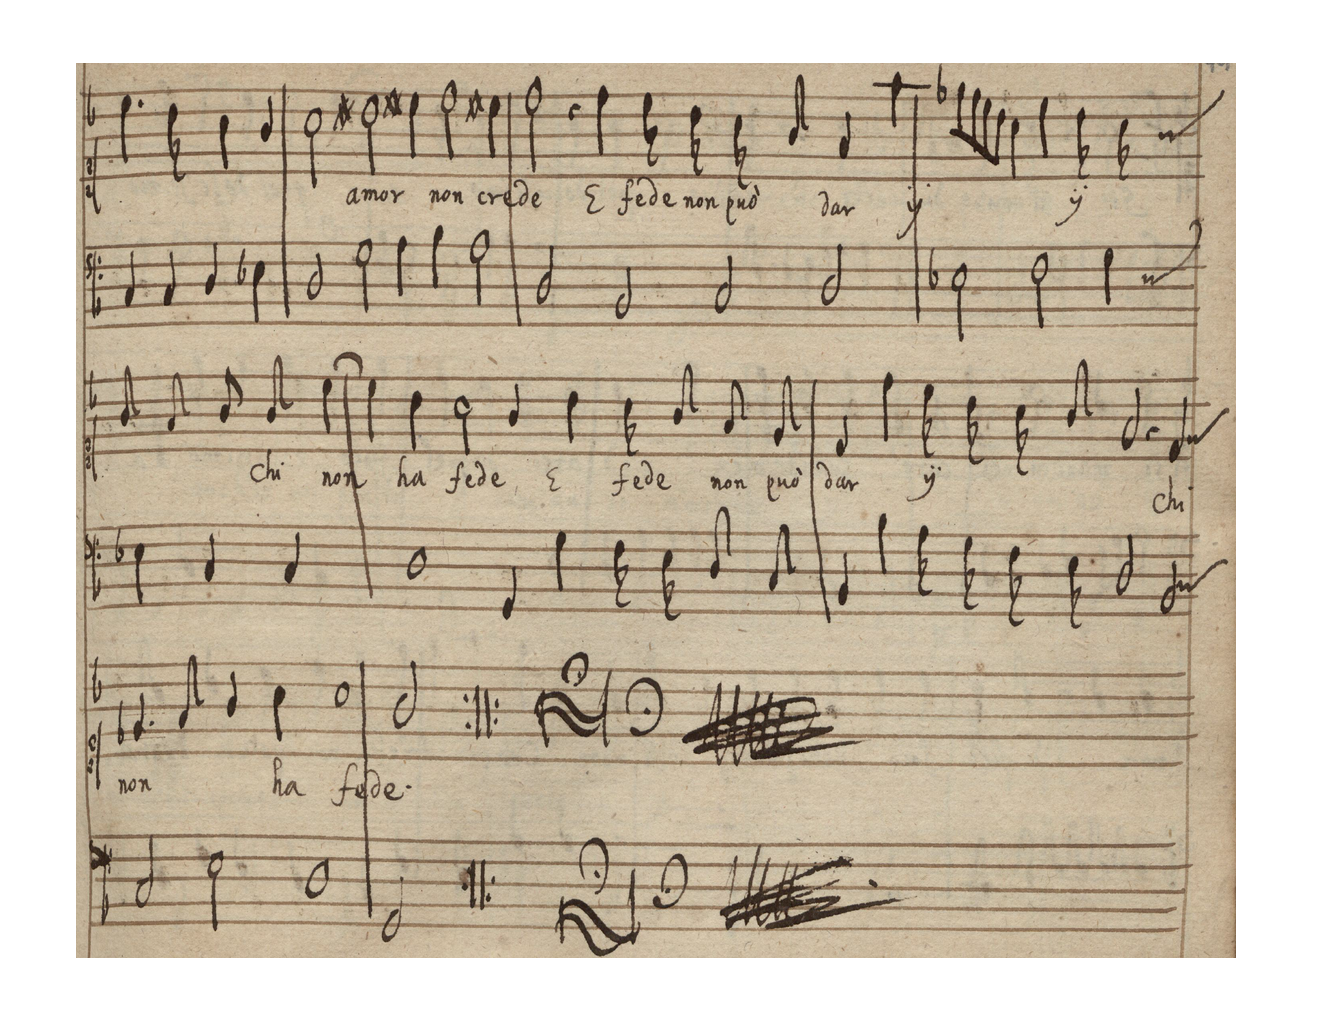 amor non crede E fede non può dar ÿ ÿ
chi non ha fede E fede non può dar ÿ chi
non ha fede.